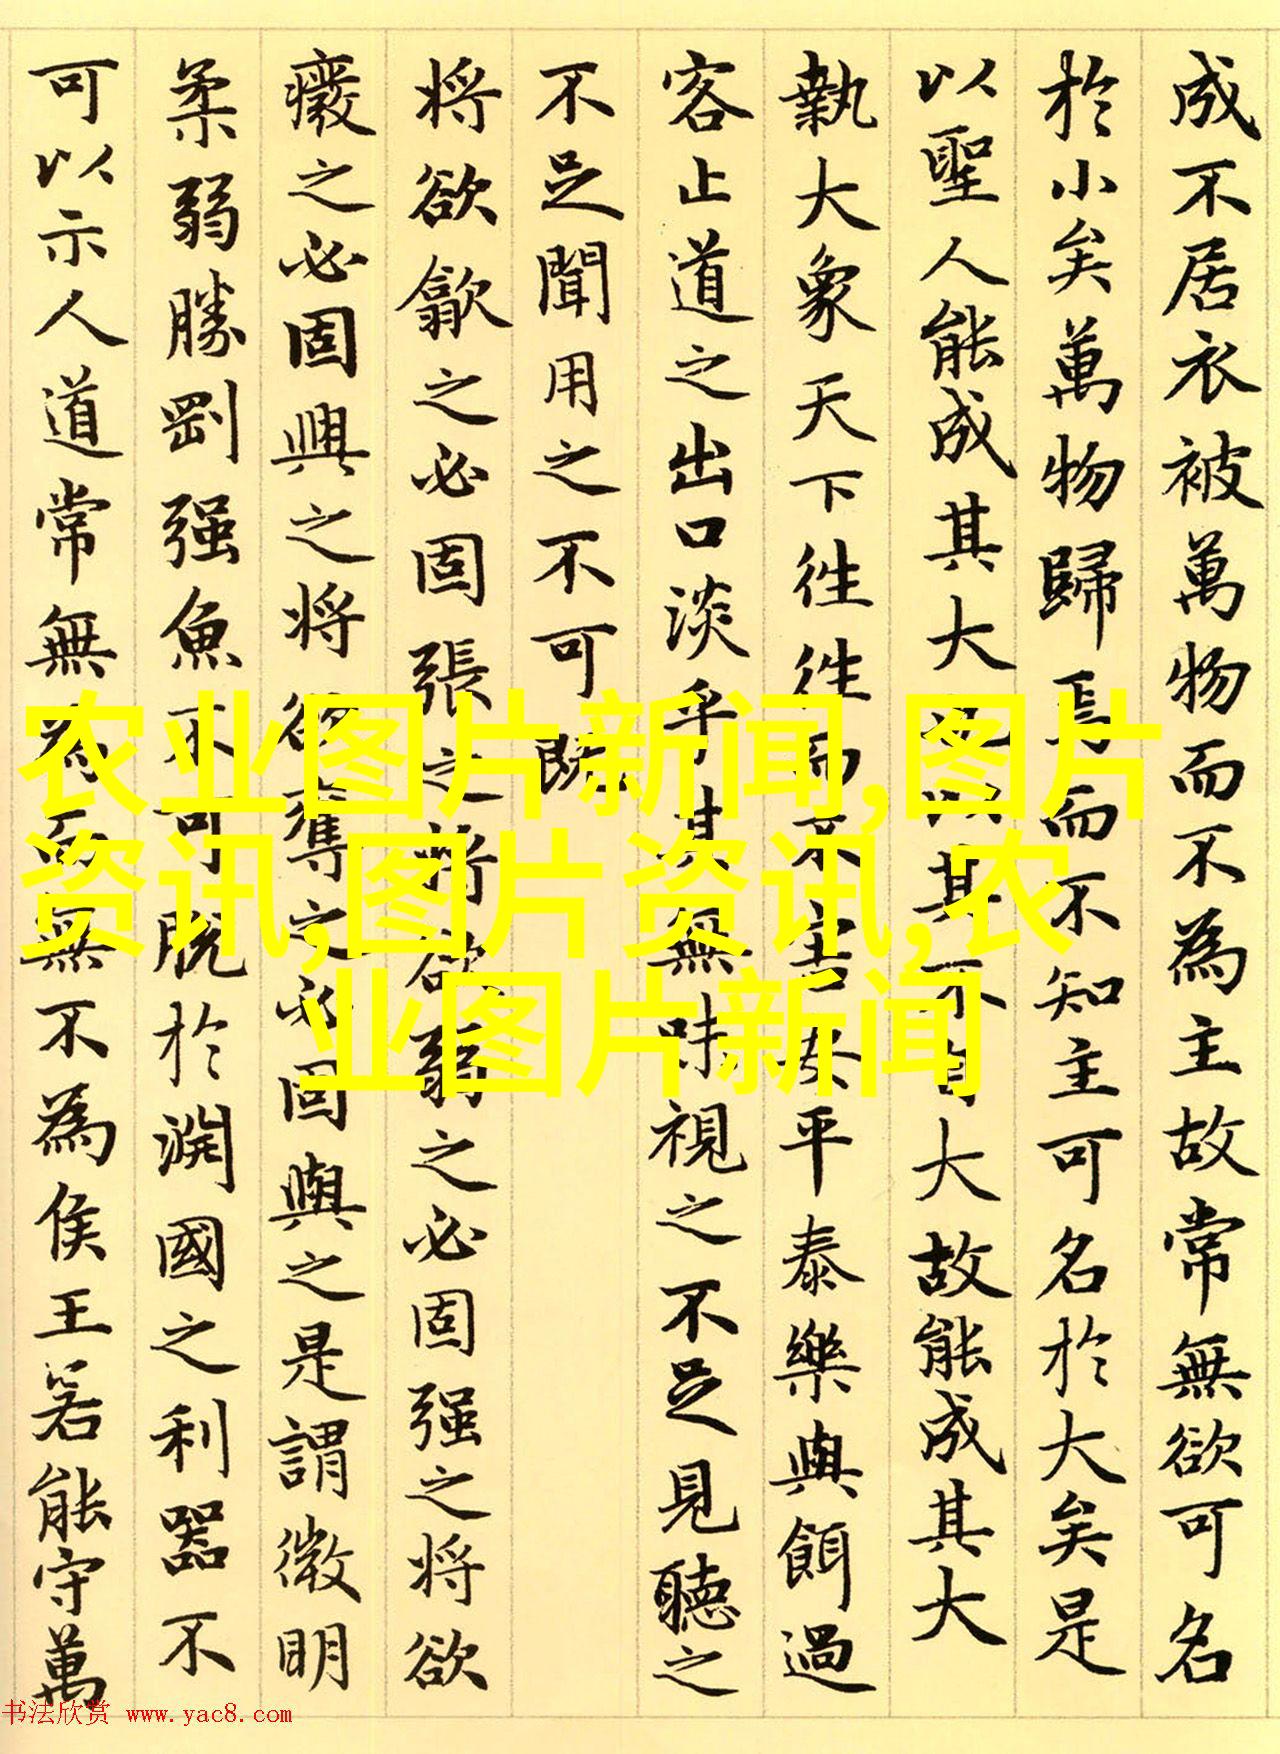 成不居衣被萬物而不為主故常無欲可名
於小矣萬物歸焉而不知主可名於大矣是
以聖人能成其大也以其不自大故能成其大
執大象天下徃徃而不害安平泰樂與餌過
客止道之出口淡乎其無味視之不足見聽之
不足聞用之不可既
将欲歙之必固張之将欲弱之必固强之将欲
癈之必固興之将欲奪之必固與之是謂微明
柔弱勝剛强魚不可脱於淵國之利器不
可以示人道常無為而無不為侯王若能守萬
农业图片新闻,图片
资讯,图片资讯,农
业图片新闻
书法欣赏 www.yac8.com